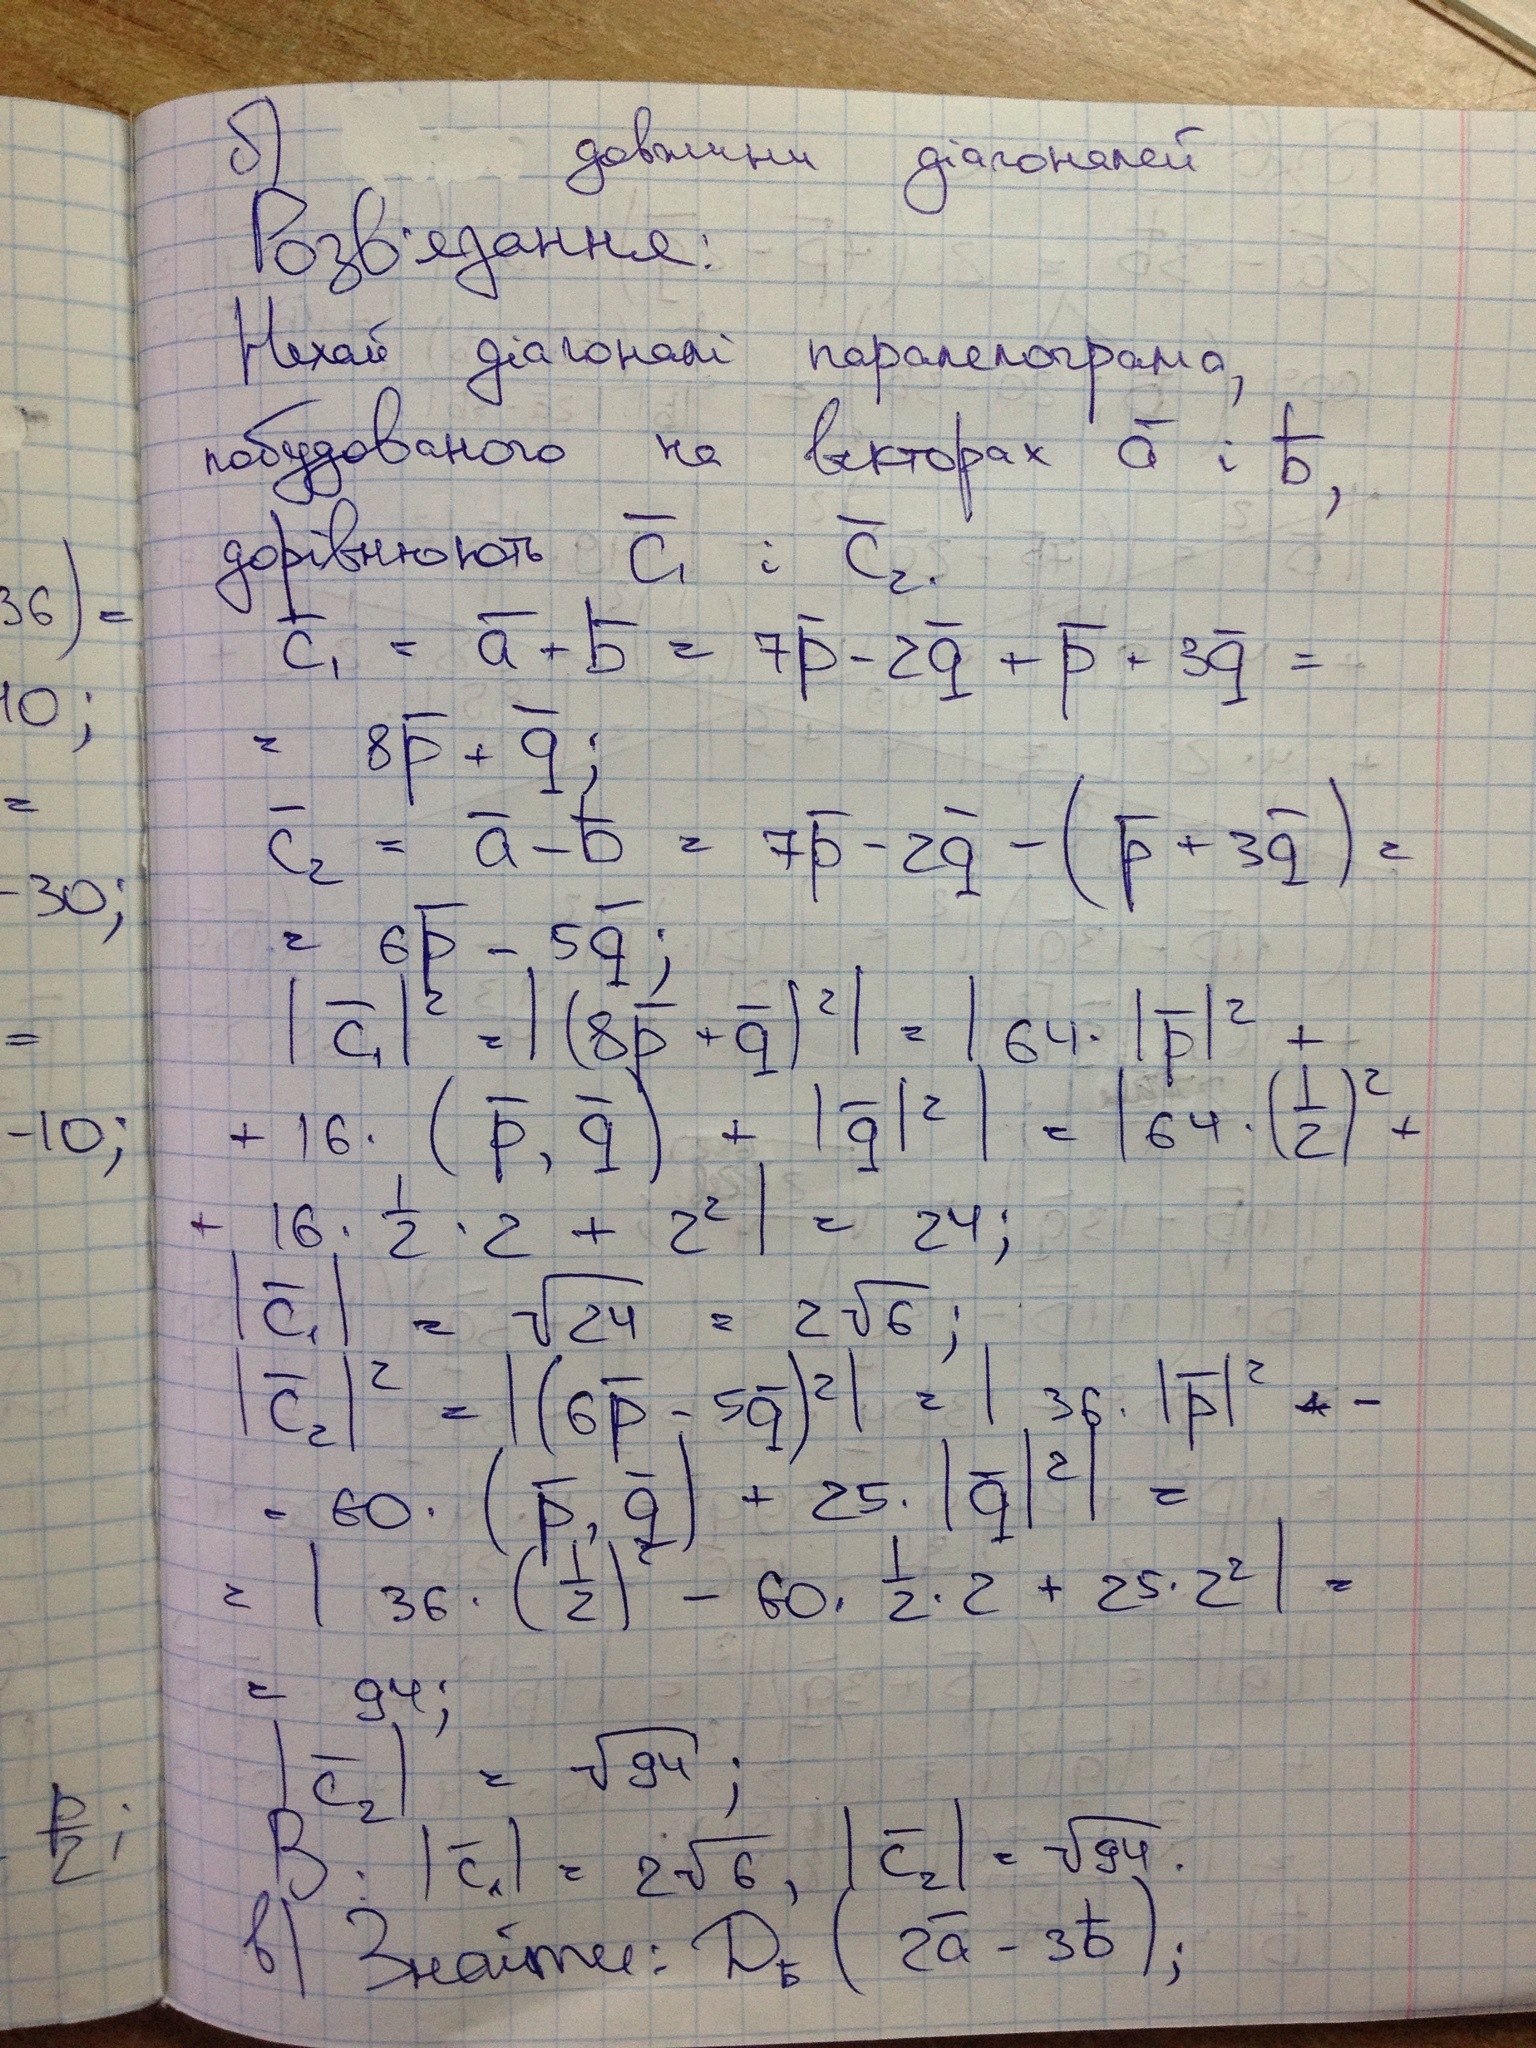 б) довжини діагоналей
Розв'язання:
Нехай діагоналі паралелограма,
побудованого на векторах a̅ і b̅,
дорівнюють c̅₁ і c̅₂.
c̅₁ = a̅ + b̅ = 7p̅ - 2q̅ + p̅ + 3q̅ =
= 8p̅ + q̅;
c̅₂ = a̅ - b̅ = 7p̅ - 2q̅ - (p̅ + 3q̅) =
= 6p̅ - 5q̅;
|c̅₁|² = |(8p̅ + q̅)²| = |64·|p̅|² +
+ 16·(p̅, q̅) + |q̅|²| = |64·(1/2)² +
+ 16·1/2·2 + 2²| = 24;
|c̅₁| = √24 = 2√6;
|c̅₂|² = |(6p̅ - 5q̅)²| = |36·|p̅|² -
- 60·(p̅, q̅) + 25·|q̅|²| =
= |36·(1/2)² - 60·1/2·2 + 25·2²| =
= 94;
|c̅₂| = √94;
В: |c̅₁| = 2√6, |c̅₂| = √94.
в) Знайти: D_b̅ (2a̅ - 3b̅);
36) =
10;
=
-30;
=
-10;
p̅/2;